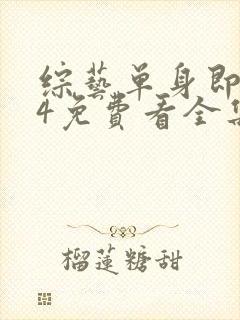 綜藝單身即
4免費看全集
榴蓮糖甜